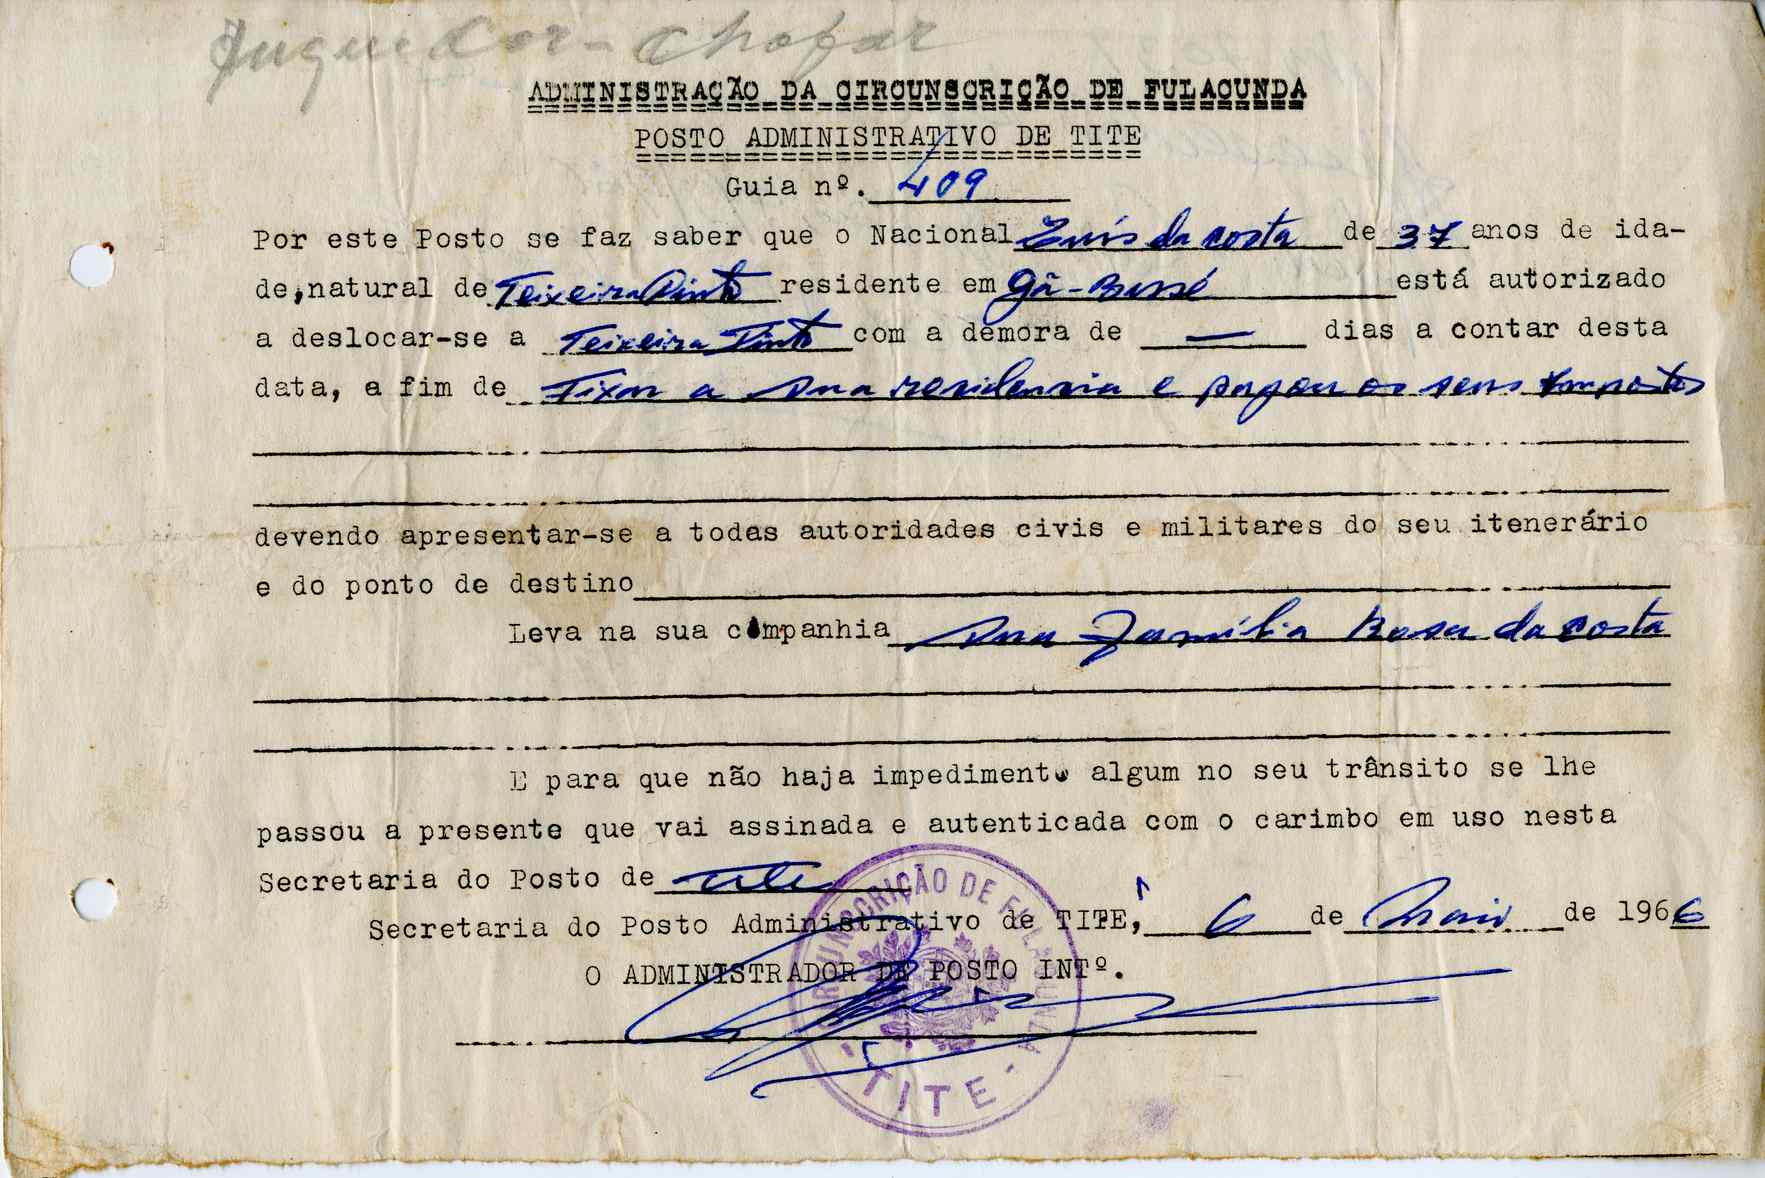 chofar
ADMINISTRAÇÃO DA CIRCUNSCRIÇÃO DE FULACUNDA
POSTO ADMINISTRATIVO DE TITE
Guia nº. 409
Por este Posto se faz saber que o Nacional Luís da costa de 37 anos de ida-
de, natural de Teixeira Pinto residente em Gã-Bessé está autorizado
a deslocar-se a Teixeira Pinto com a demora de — dias a contar desta
data, a fim de Fixar a sua residencia e pagar os seus Impostos
devendo apresentar-se a todas autoridades civis e militares do seu itenerário
e do ponto de destino
Leva na sua companhia sua Família Rosa da costa
E para que não haja impedimento algum no seu trânsito se lhe
passou a presente que vai assinada e autenticada com o carimbo em uso nesta
Secretaria do Posto de Tite
Secretaria do Posto Administrativo de TITE, 6 de Maio de 1966
O ADMINISTRADOR DE POSTO INTº.
CIRCUNSCRIÇÃO DE FULACUNDA
- TITE -